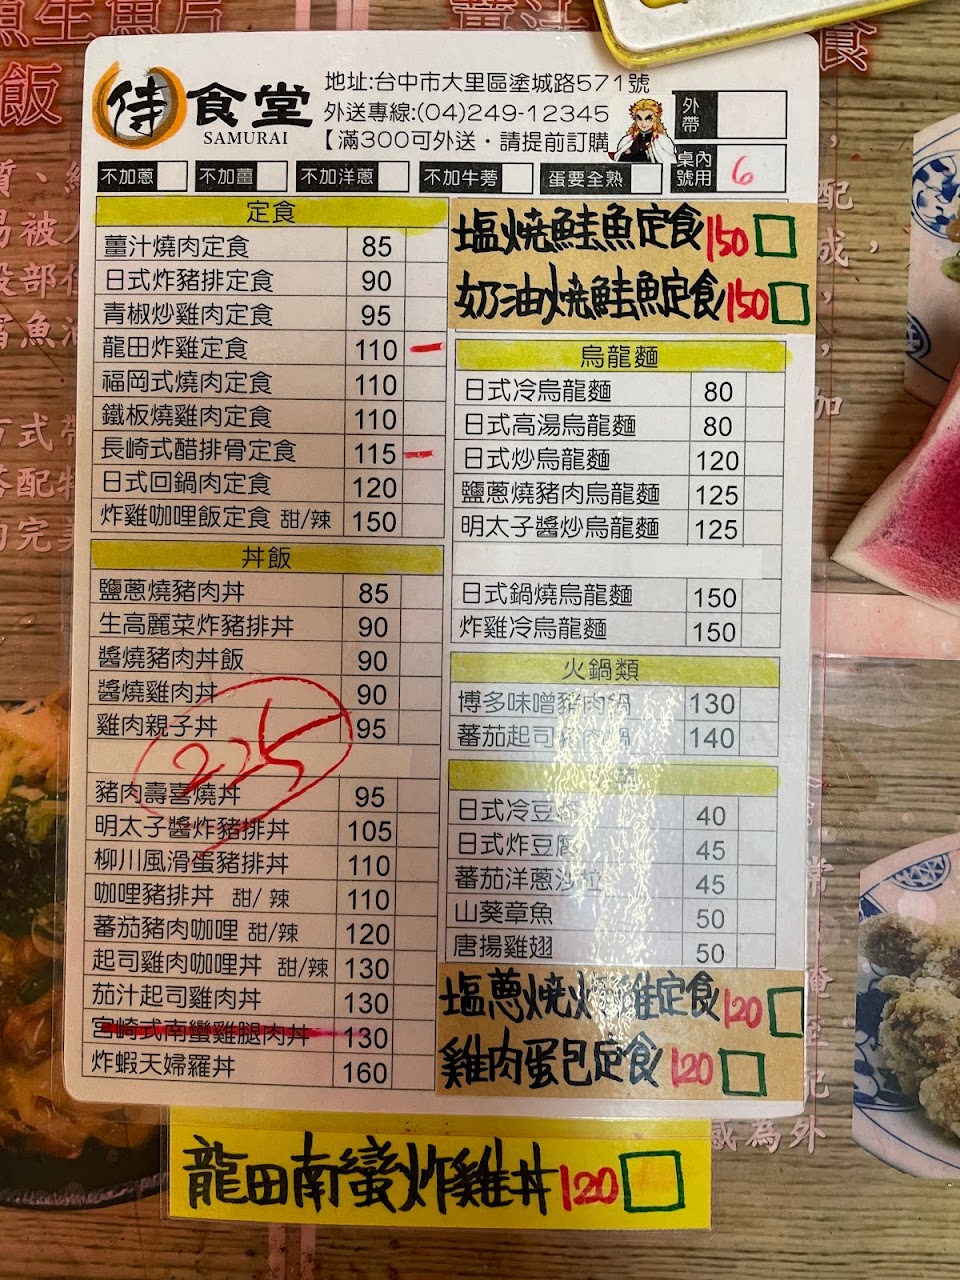 侍食堂
SAMURAI
地址:台中市大里區塗城路571號
外送專線:(04)249-12345
【滿300可外送・請提前訂購
外帶
桌號 內用 6
不加蔥 不加薑 不加洋蔥 不加牛蒡 蛋要全熟
定食
薑汁燒肉定食 85
日式炸豬排定食 90
青椒炒雞肉定食 95
龍田炸雞定食 110
福岡式燒肉定食 110
鐵板燒雞肉定食 110
長崎式醋排骨定食 115
日式回鍋肉定食 120
炸雞咖哩飯定食 甜/辣 150
丼飯
鹽蔥燒豬肉丼 85
生高麗菜炸豬排丼 90
醬燒豬肉丼飯 90
醬燒雞肉丼 90
雞肉親子丼 95
225
豬肉壽喜燒丼 95
明太子醬炸豬排丼 105
柳川風滑蛋豬排丼 110
咖哩豬排丼 甜/辣 110
蕃茄豬肉咖哩 甜/辣 120
起司雞肉咖哩丼 甜/辣 130
茄汁起司雞肉丼 130
宮崎式南蠻雞腿肉丼 130
炸蝦天婦羅丼 160
塩燒鮭魚定食 150
奶油燒鮭魚定食 150
烏龍麵
日式冷烏龍麵 80
日式高湯烏龍麵 80
日式炒烏龍麵 120
鹽蔥燒豬肉烏龍麵 125
明太子醬炒烏龍麵 125
日式鍋燒烏龍麵 150
炸雞冷烏龍麵 150
火鍋類
博多味噌豬肉鍋 130
蕃茄起司豬肉鍋 140
日式冷豆腐 40
日式炸豆腐 45
蕃茄洋蔥沙拉 45
山葵章魚 50
唐揚雞翅 50
塩蔥燒炸雞定食 120
雞肉蛋包定食 120
龍田南蠻炸雞丼 120